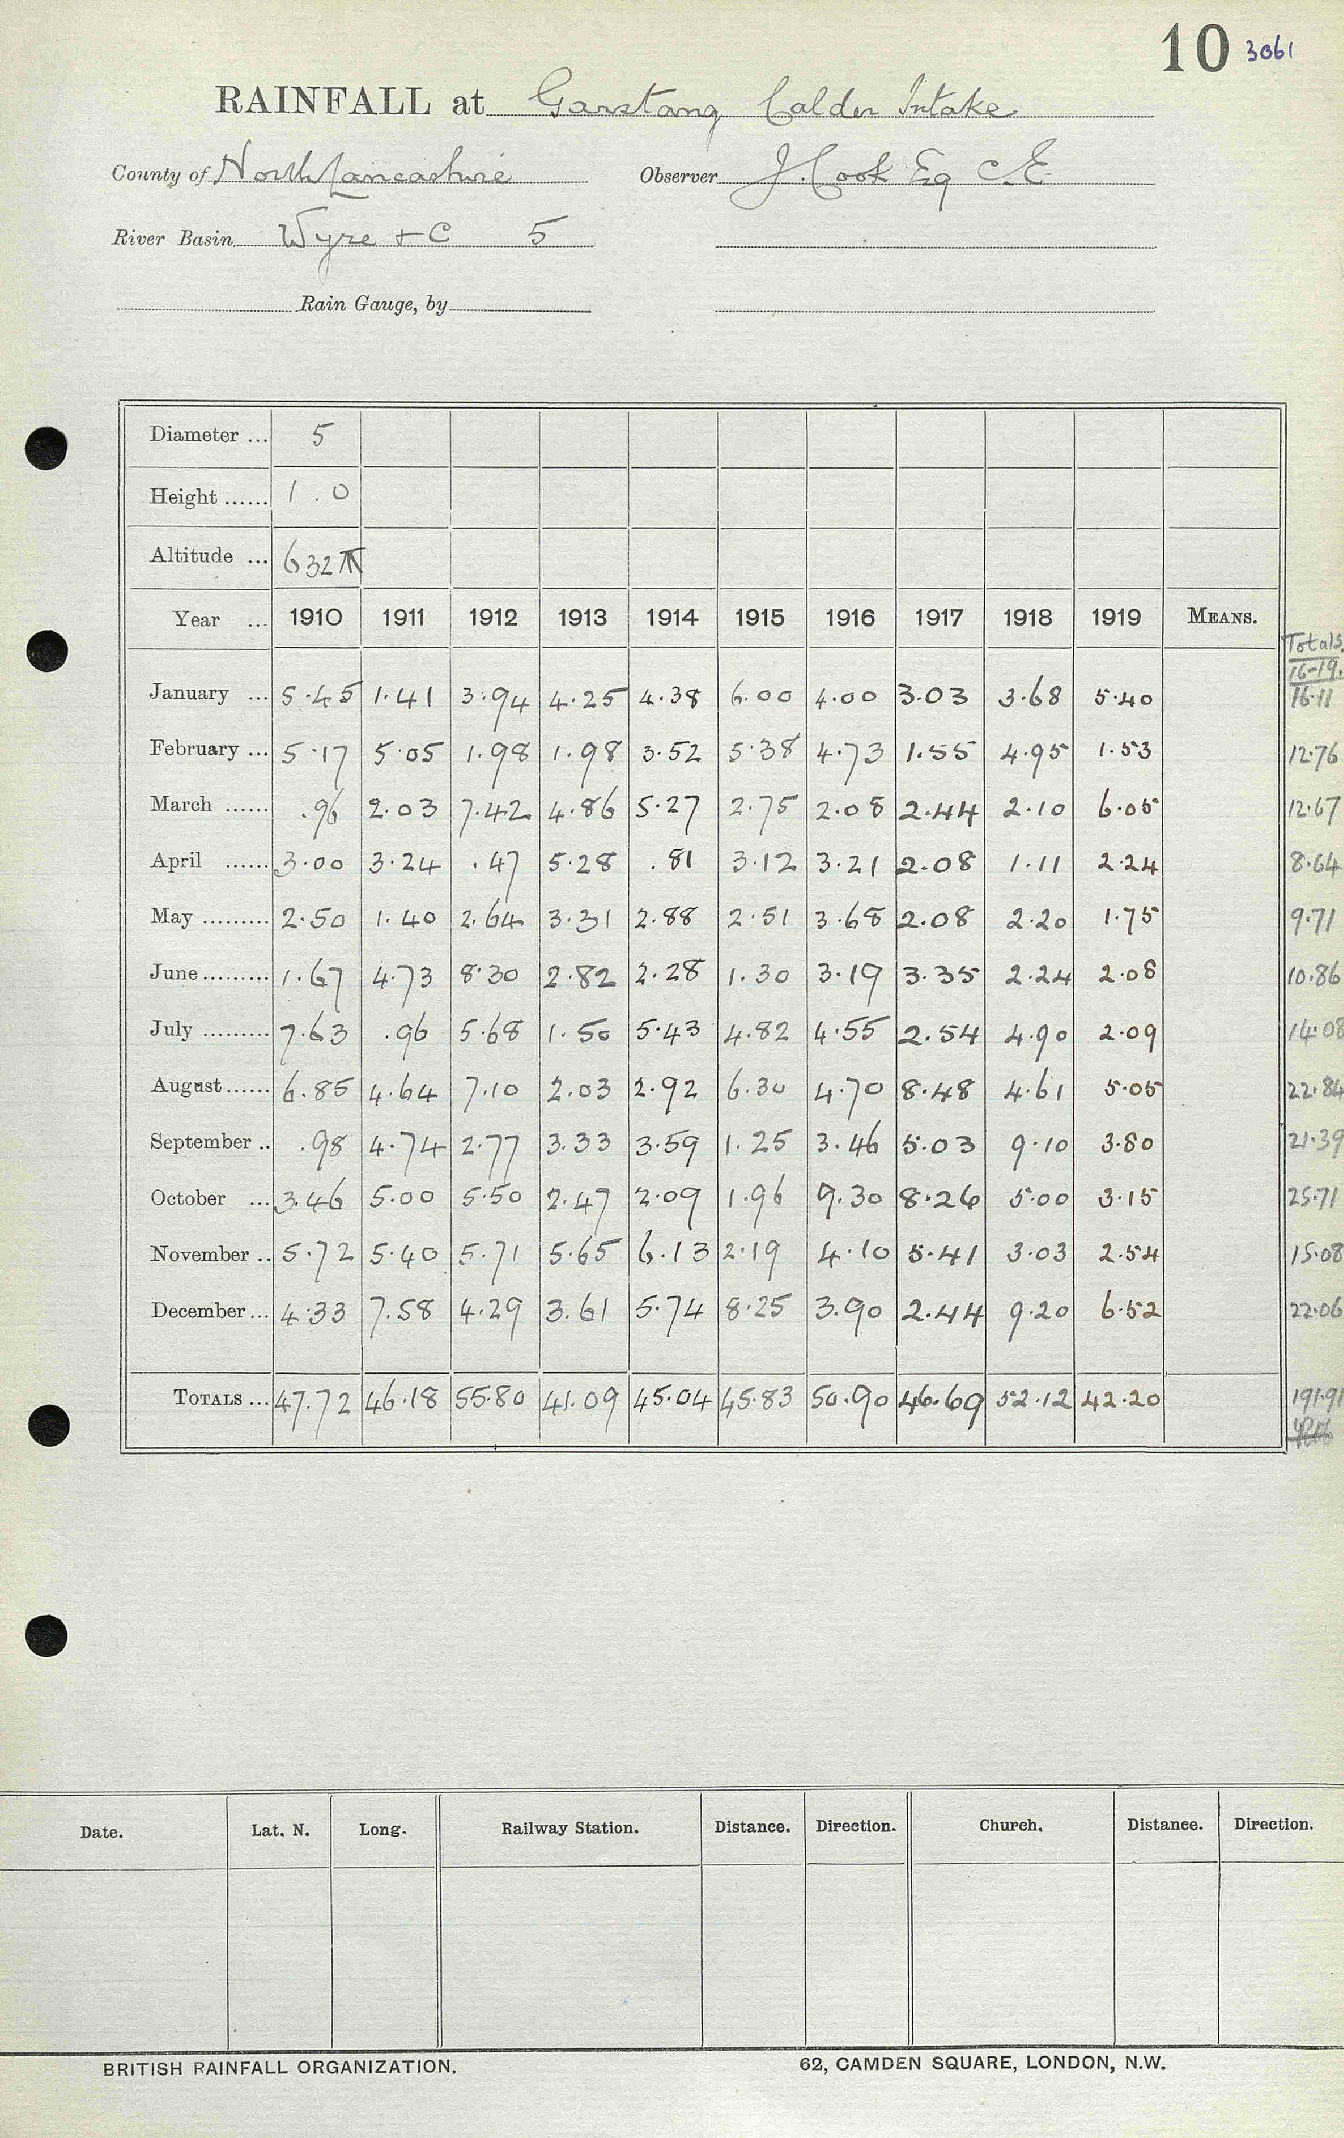 10 3061
RAINFALL at Garstang Calder Intake
County of North Lancashire Observer J. Cook Esq C.E
River Basin Wyre + C 5
Rain Gauge, by
Diameter ... 5
Height ...... 1.0
Altitude ... 632
Year ... 1910 1911 1912 1913 1914 1915 1916 1917 1918 1919 MEANS.
Totals
16-19.
January ... 5.45 1.41 3.94 4.25 4.38 6.00 4.00 3.03 3.68 5.40 16.11
February ... 5.17 5.05 1.98 1.98 3.52 5.38 4.73 1.55 4.95 1.53 12.76
March ...... .96 2.03 7.42 4.86 5.27 2.75 2.08 2.44 2.10 6.05 12.67
April ...... 3.00 3.24 .47 5.28 .81 3.12 3.21 2.08 1.11 2.24 8.64
May ......... 2.50 1.40 2.64 3.31 2.88 2.51 3.68 2.08 2.20 1.75 9.71
June ......... 1.67 4.73 8.30 2.82 2.28 1.30 3.19 3.35 2.24 2.08 10.86
July ......... 7.63 .96 5.68 1.50 5.43 4.82 4.55 2.54 4.90 2.09 14.08
August ...... 6.85 4.64 7.10 2.03 2.92 6.30 4.70 8.48 4.61 5.05 22.84
September .. .98 4.74 2.77 3.33 3.59 1.25 3.46 5.03 9.10 3.80 21.39
October ... 3.46 5.00 5.50 2.47 2.09 1.96 9.30 8.26 5.00 3.15 25.71
November .. 5.72 5.40 5.71 5.65 6.13 2.19 4.10 5.41 3.03 2.54 15.08
December ... 4.33 7.58 4.29 3.61 5.74 8.25 3.90 2.44 9.20 6.52 22.06
TOTALS ... 47.72 46.18 55.80 41.09 45.04 45.83 50.90 46.69 52.12 42.20 191.91
Date. Lat. N. Long. Railway Station. Distance. Direction. Church. Distance. Direction.
BRITISH RAINFALL ORGANIZATION. 62, CAMDEN SQUARE, LONDON, N.W.